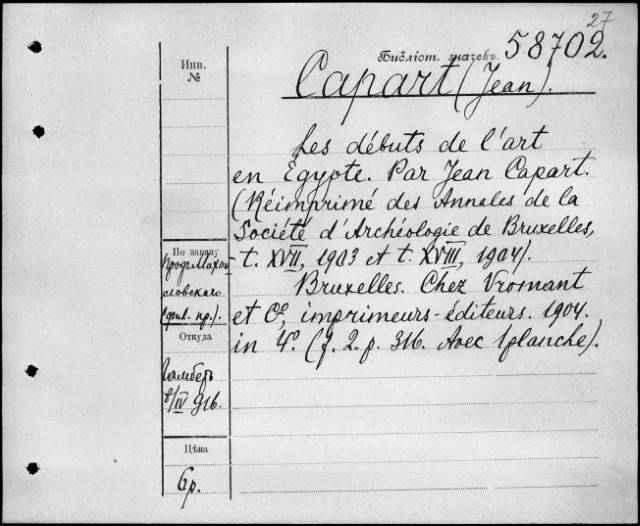 27
Библіот. значекъ. 58702.
Инв.
№
Capart (Jean).
Les débuts de l'art
en Égypte. Par Jean Capart.
(Réimprimé des Annales de la
Société d'Archéologie de Bruxelles,
t. XVII, 1903 et t. XVIII, 1904).
Bruxelles. Chez Vromant
et Cº, imprimeurs-éditeurs. 1904.
in 4º. (f. 2. p. 316. Avec 1 planche).
По заказу
словскаго
Откуда
8/IV 916.
Цѣна
6 р.